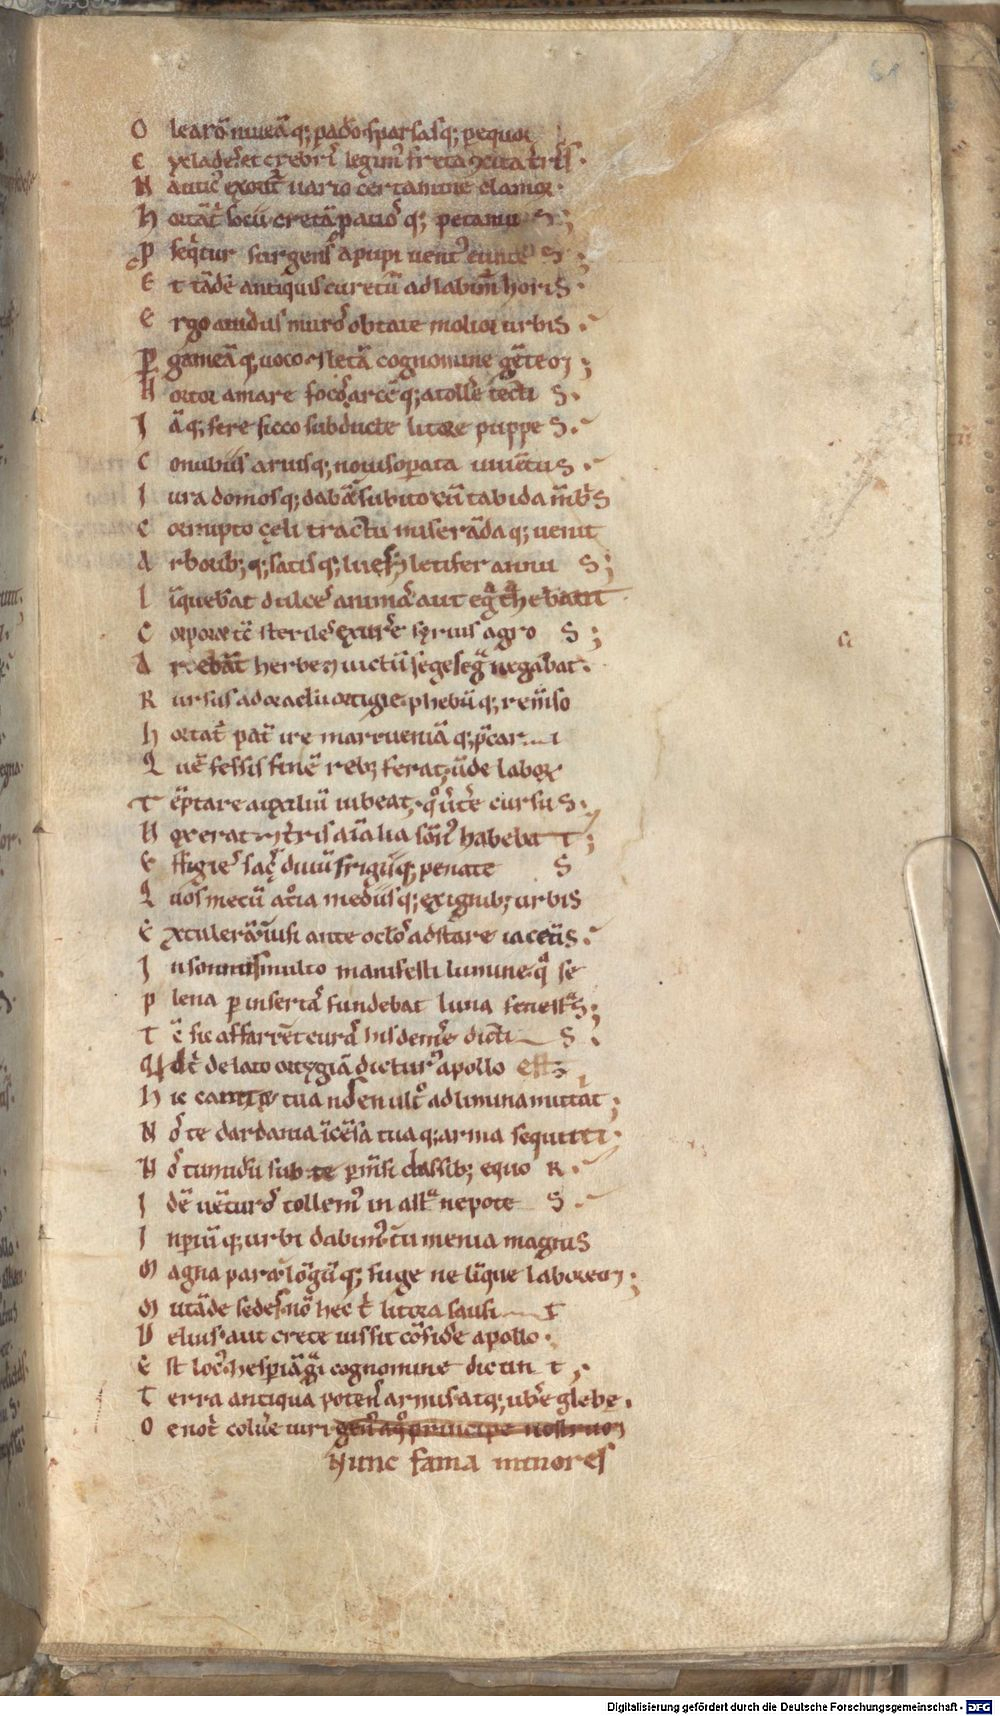 61
O learō niueā q; paros sparsasq; p equor
C ycladas et crebris legim᷒ freta ꝯcita t̄ris.
N autic᷒ exorit᷑ uario certamine clamor.
H ortāt᷑ socii cretā patios q; petamu S;
P seq̄tur surgens a pupi uent᷒ eunte S;
E t tādē antiquis curetū ad labim᷑ horis.
E rgo auidus muros obtate molior urbis.
P gameā q; uoco letā cognomine gētem;
H ortor amare focos arcē q; atollē tecti S.
I ā q; fere sicco subducte litore puppe S.
C onubiis aruisq; nouis opata iuuētus.
I ura domosq; dabā subito cū tabida mēbris
C orrupto cęli tractu miserāda q; uenit
A rborib; q; satisq; lues & letifer annu S;
L īquebāt dulces animas aut egra t̄hebant
C orpora tc̄ steriles exurē syrius agro S;
A rebāt herbe & uictū seges egra negabat.
R ursus ad oraclū ortigie phebū q; remiso
H ortat᷑ pat̄ ire mari ueniā q; p̄cari
Q uē fessis finē reb; ferat, ūde labor
T ēptare auxiliū iubeat, quo ūtē cursus.
N ox erat & t̄ris aīalia sōn᷒ habebat;
E ffigies sacre diuū frigiiq; penate S
Q uos mecū a troia mediisq; ex ignib; urbis
E xtulerā uisi ante oclos adstare iacētis.
I n somnis multo manifesti lumine q̄ se
P lena p insertas fundebat luna fenestras;
T ē sic affari et curas his demē dicti S.
Q d t᷑ delato ortygiā dictur᷒ apollo est;
H ic canit & tua nos en ultro ad limina mittit;
N os te dardania īcēsa tua q; arma secuti;
N os tumidū sub te pmēsi classib; equo R.
I dē uēturos tollem᷒ in astra nepote S.
I npiū q; urbi dabim᷒ tu menia magnis
M agna para lōgū q; fuge ne līque laborem;
M utāde sedes nō hec t᷑ litora suasit
D elius aut crete iussit cōsidē apollo.
E st loc᷒ hesperiā grai cognomine dicunt;
T erra antiqua potens armis atq; ubē glebe.
O enotri coluē uiri gens aq̄ principe nostrum
Nunc fama minores
Digitalisierung gefördert durch die Deutsche Forschungsgemeinschaft - DFG